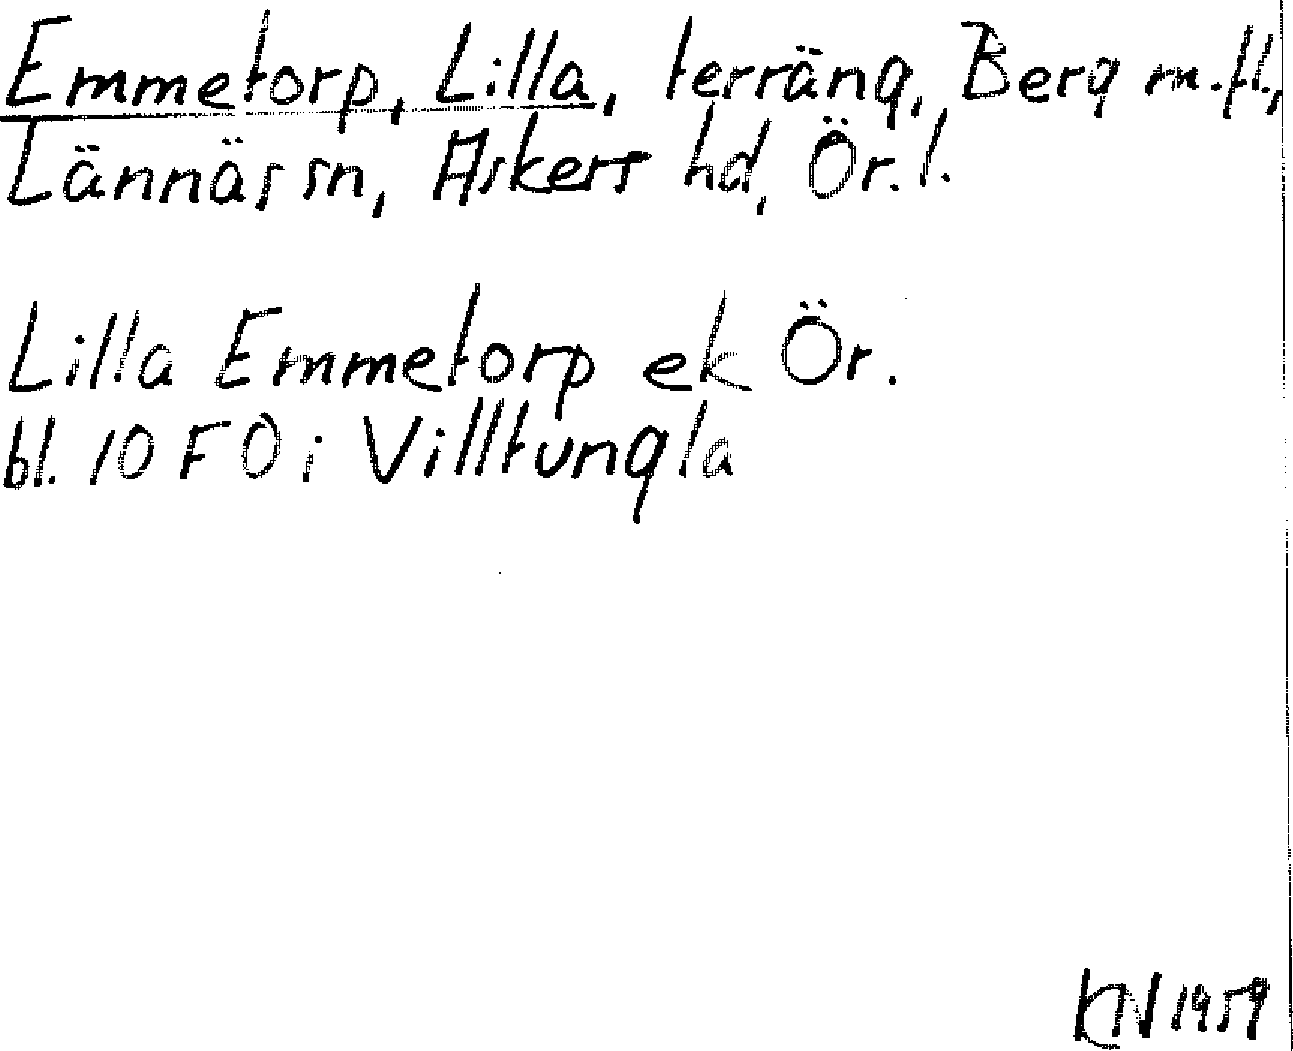 Emmetorp, Lilla, terräng, Berg m.fl.,
Lännäs sn, Askers hd, Ör. l.
Lilla Emmetorp ek Ör.
bl. 10 F 0 i Villtungla
KN 1959